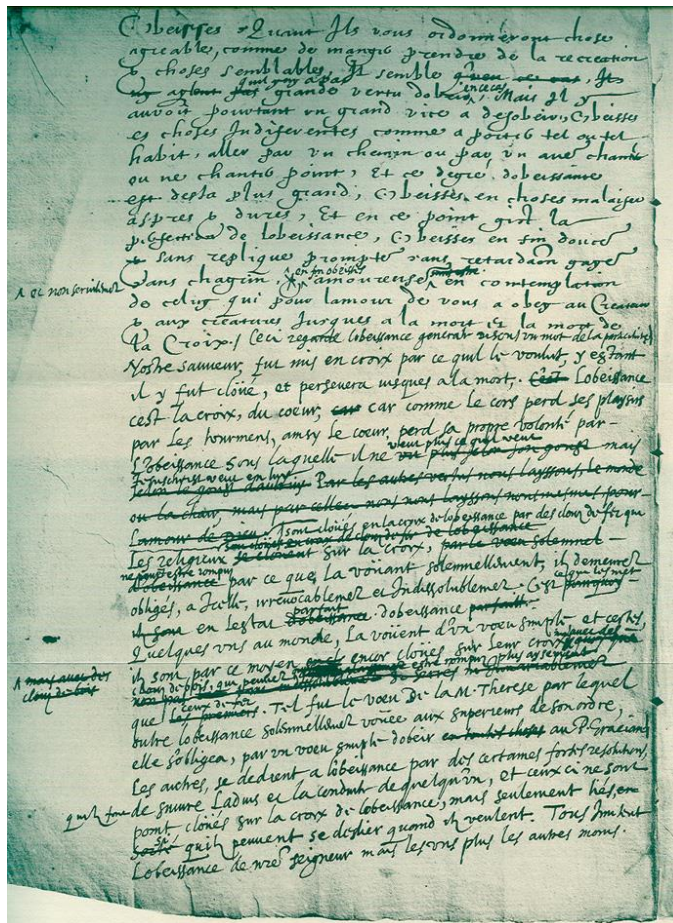 Obeisses Quant Ils vous ordonneront chose
agreable, comme de manger prendre de la recreation
& choses semblables, Il semble
quil ny a pas grande vertu dobeir en ceci, Mais Il y
auroit pourtant un grand vice a desobeir, Obeisses
es choses Indiferentes comme a porter tel ou tel
habit, aller par un chemin ou par un autre, chanter
ou ne chanter point, Et ce degré dobeissance
est desia plus grand, Obeisses en choses malaisees
aspres & dures, Et en ce point gist la
perfection de lobeissance, Obeisses en fin doucement
& sans replique promptement sans retardation
sans chagrin, en fin obeisses amoureusement en contemplation
^ et non
de celuy qui pour lamour de vous a obey au Createur
& aux creatures Jusques a la mort et la mort de
la Croix. Ceci regarde lobeissance general disons un mot de la particuliere
Nostre sauveur, fut mis en croix par ce quil le voulut, y estant
il y fut cloüé, et persevera iusques a la mort. C'est Lobeissance
cest la croix, du coeur, car comme le cors perd ses plaisirs
par les tourmens, ainsy le coeur perd sa propre volonté par
Lobeissance sous laquelle il ne veut plus ce quil veut mais
Jesuschrist veut en luy
selon le goust dautruy Par les autres vertus nous layssons le monde
ou la chair, mais par celle nous nous layssons nous mesmes pour
Lamour de Dieu. sont cloüés en la croix de lobeissance par des clous de fer qui
Les religieux se cloüent sur la croix, par le voeu solemnel
ne peuvent estre rompus
dobeissance par ce que, la voüant solemnellement, ilz demeurent
obligés, a Icelle, irrevocablement et Indissolublement. C'est ce que les met
en lestat parfait dobeissance
Quelques uns au monde, la voüent d'un voeu simple et ceux cy
ilz sont par ce moyen encor cloüés sur leur croix
^ mays avec des
clous de bois
clous de bois, qui peuvent estre rompus plus aysement
que ceux de fer les premiers. Tel fut le voeu De la M. Therese par lequel
outre lobeissance solemnellement voüée aux superieurs de son ordre,
elle sobligea, par un voeu simple dobeir en toutes choses au P. Gracian
Les autres, se dedient a lobeissance par des certaines fortes resolutions
quilz font de suivre Ladvis et la conduite de quelqu'un, et ceux ci ne sont
point cloüés sur la croix de lobeissance, mais seulement liés, en
sorte quilz peuvent se deslier quand ilz veulent. Tous Imitent
Lobeissance de nre seigneur mais les uns plus les autres moins.